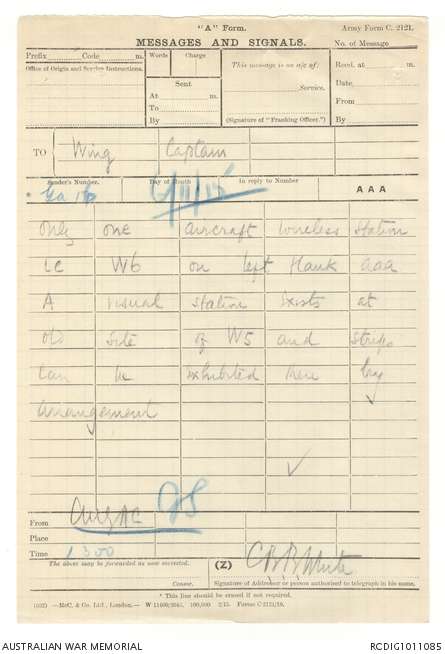 "A" Form. Army Form C. 2121.
MESSAGES AND SIGNALS. No. of Message
Prefix Code m. Words Charge This message is on a/c of: Recd. at m.
Office of Origin and Service Instructions. Date
Sent Service. From
At m.
To
By (Signature of "Franking Officer.") By
TO Wing Captain
Sender's Number. Day of Month In reply to Number AAA
6/11/15
Only one aircraft wireless station
ie W6 on left flank aaa
A visual station exists at
old site of W5 and strips
can be exhibited here by
arrangement
From Anzac
Place
Time 1300
The above may be forwarded as now corrected. (Z) CBB White
Censor. Signature of Addressor or person authorised to telegraph in his name.
* This line should be erased if not required.
McC. & Co. Ltd., London.— Forms C 2121/10.
AUSTRALIAN WAR MEMORIAL RCDIG1011085